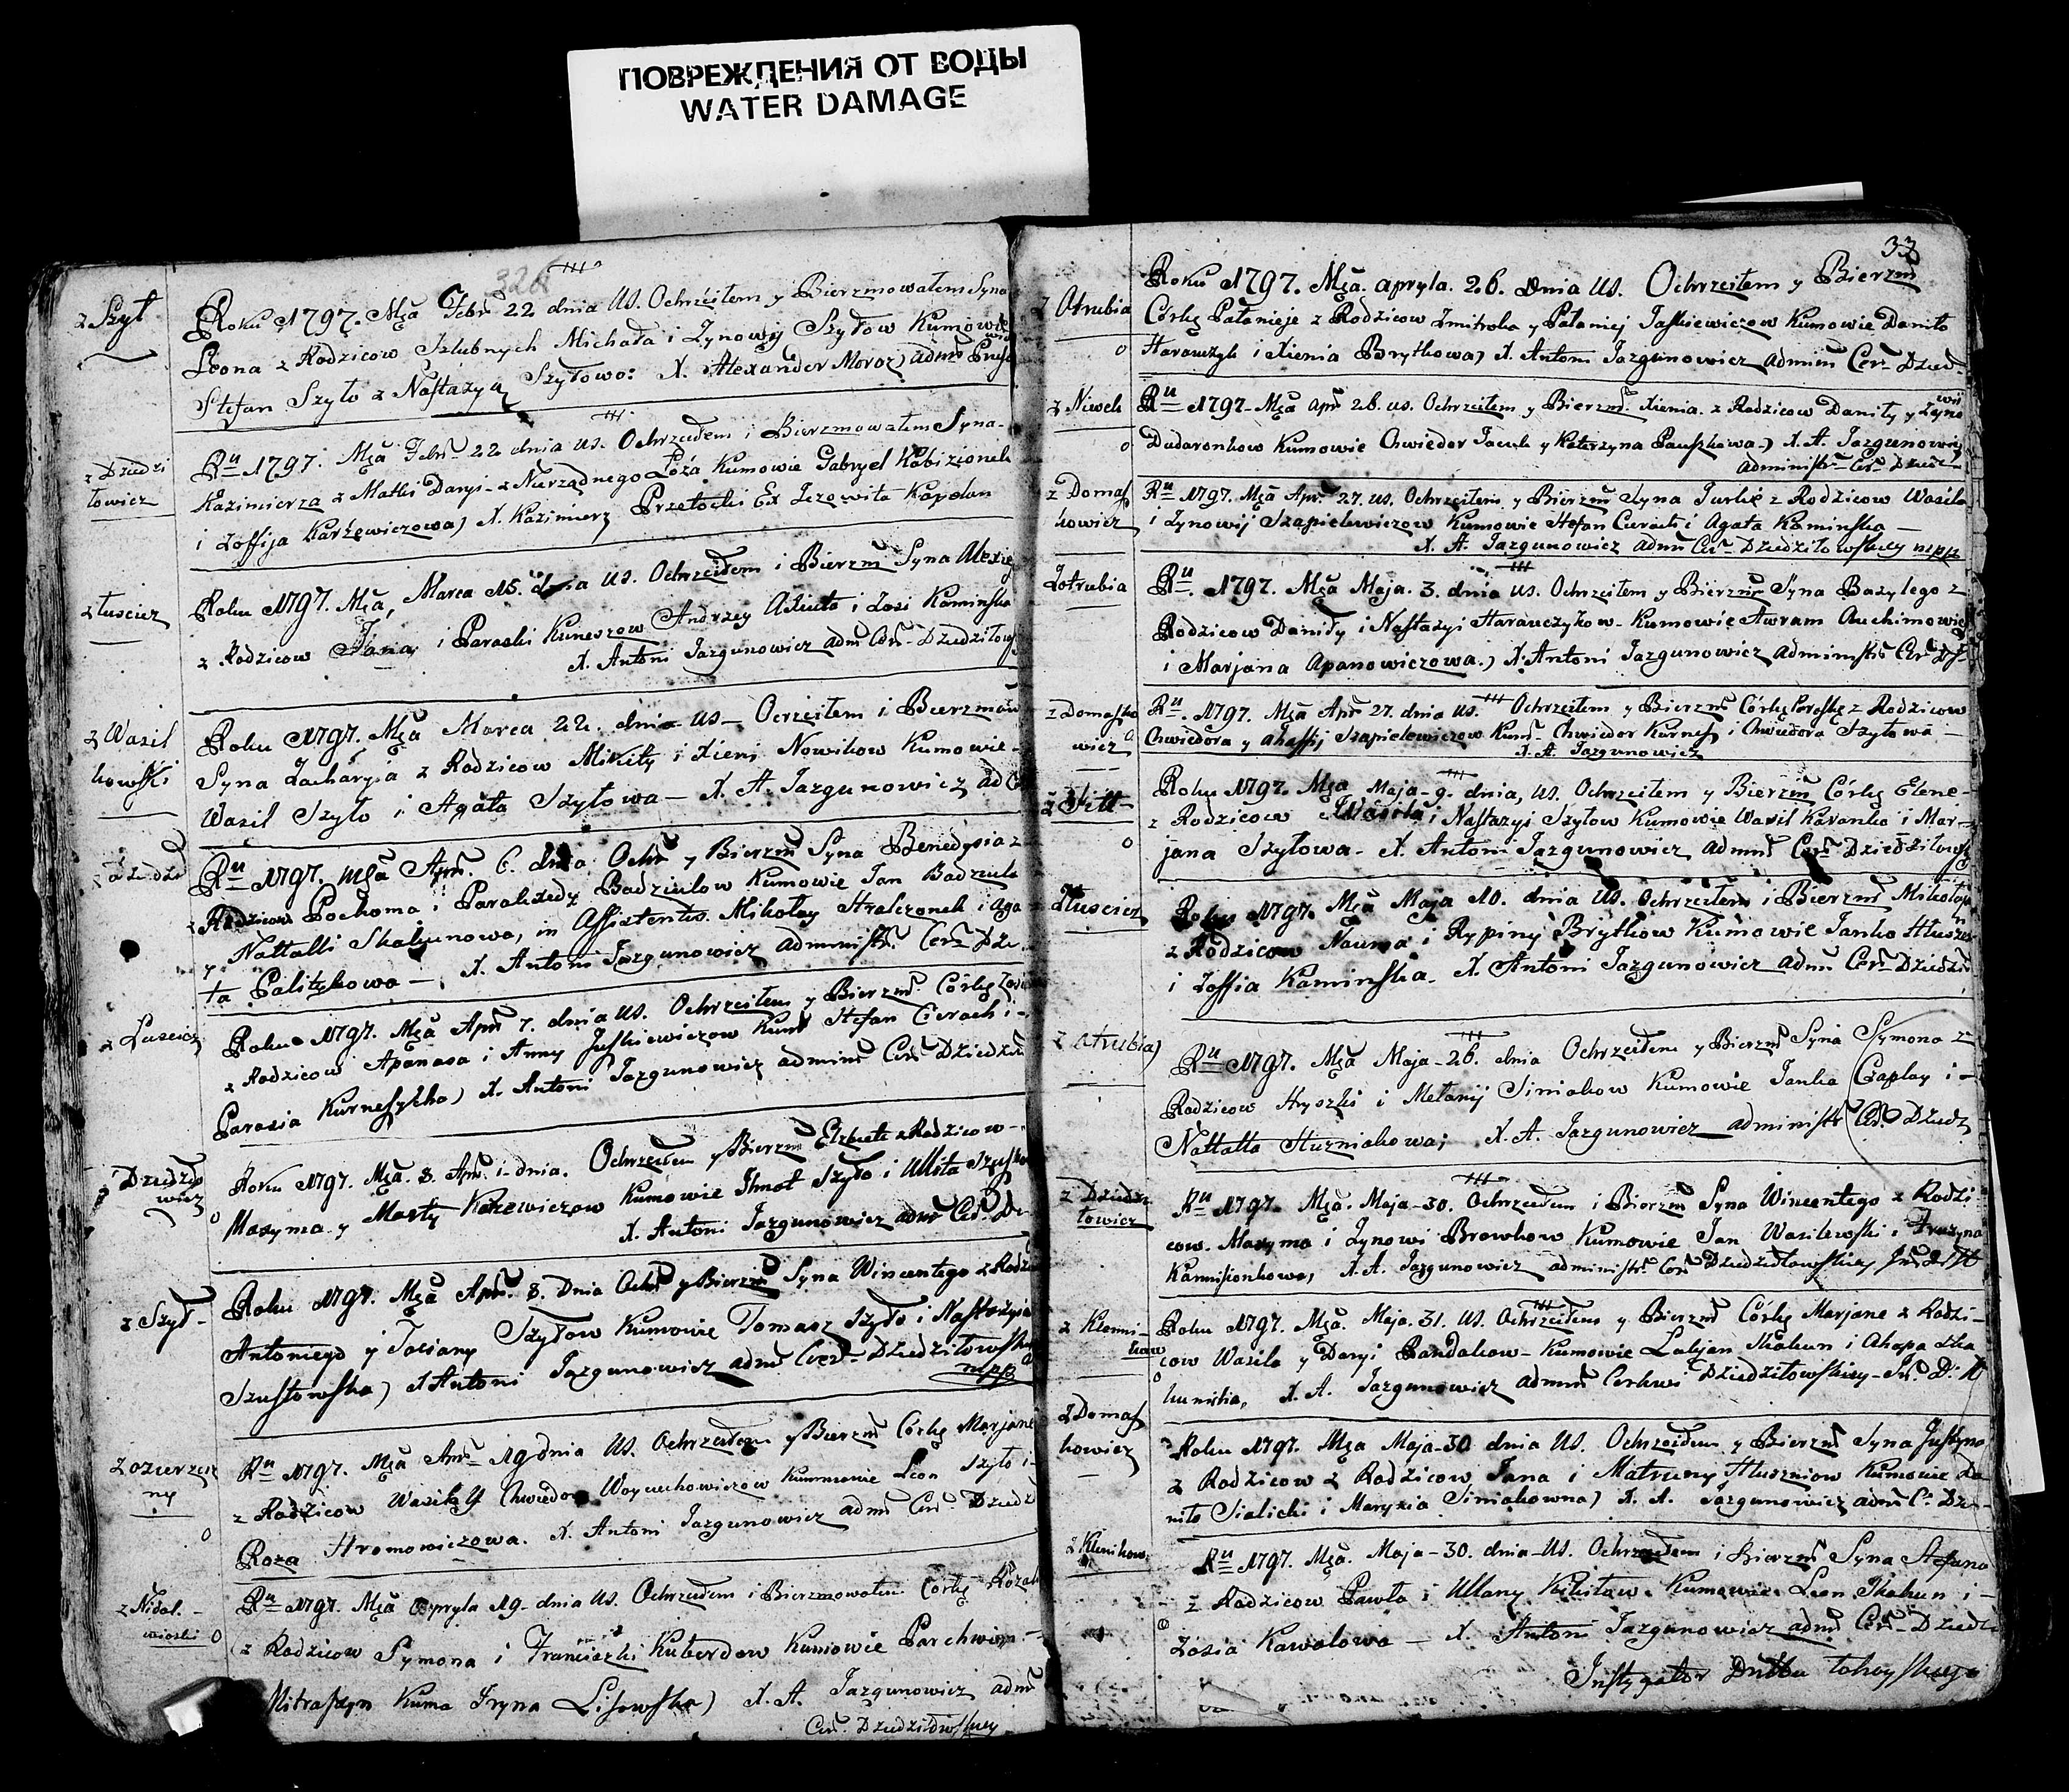 ПОВРЕЖДЕНИЯ ОТ ВОДЫ
WATER DAMAGE
z Szył
Roku 1797. Mça Febr 22 dnia us. Ochrzciłem y Bierzmowałem Syna
Leona z Rodzicow Szlubnych Michała i Zynowij Szyłow Kumowie
Stefan Szyło z Nastazyą Szyłowo: X. Alexander Moroz) adm
z Dziedzi
łowicz
Ru 1797. Mça Febr 22 dnia us. Ochrzciłem i Bierzmowałem Syna-
Kazimierza z Matki Daryi z Nierządnego Łoża Kumowie Gabryel Kobizionek
i Zoffija Karżewiczowa) X. Kazimierz Przetocki Ex Jezowita Kapelan
z Łuscicz
Roku 1797. Mça, Marca 15. dnia us. Ochrzciłem i Bierzm Syna Alexieja
z Rodzicow Jana i Paraski Kuneszow Andrzey i Zosi Kaminska
X. Antoni Jazgunowicz adm Cer- Dziedziłows
z Wasil
kowszki
Roku 1797. Mça Marca 22. dnia us- Ocrzciłem i Bierzmow
Syna Zacharyja z Rodzicow Mikity i Xieni Nowikow Kumowie-
Wasil Szyło i Agata Szyłowa- X. A. Jazgunowicz ad C
z Dziedzi
Ru 1797. Mça Apr. 6. dnia Ochr y Bierzm Syna Benedysia z
Rodzicow Pochoma i Paraksedy Badziulow Kumowie Jan Badziulo
y Nattalli Skakunowa, in Assistentes. Mikołay Stralczonek i Aga
ta Palitykowa- X. Antoni Jazgunowicz administr. Cer- Dzie.
z Łuscicz
Roku 1797. Mça Apr 7. dnia us. Ochrzciłem y Bierzm Córkę
z Rodzicow Apanasa i Anny Juszkiewiczow Kum Stefan Ciarach i-
Parasia Kurneszycha) X. Antoni Jazgunowicz admin Cer Dziedził
Dziedziło
wicz
Roku 1797. Mça. 8. Apr. i- dnia. Ochrzciłem y Bierzm Elzbietę z Rodzicow-
Maxyma y Marty Karzewiczow Kumowie Ihnat Szyło i Ullita
X. Antoni Jazgunowicz adm Cer. Dz-
z Szył-
Roku 1797. Mça Apr. 8. Dnia Ochr y Bierzm Syna Wincentego z Rodzi
Antoniego y Taciany Szyłow Kumowie Tomasz Szyło i Nastazyia
Szustowska) X Antoni Jazgunowicz adm Cer- Dziedziłowski
mpp
z Ozierzcz
ny
Ru 1797. Mça Apr- 19 dnia us. Ochrzciłem y Bierzm Córkę Marjanę
z Rodzicow Wasila y Chwiedory Woyciechowiczow Kummowie Leon Szyło i-
Roza Hromowiczowa. X. Antoni Jazgunowicz adm Cer- Dziedz
z Nidal.-
wioski
Ru 1797. Mça apryla 19- dnia us. Ochrzciłem i Bierzmowałem Córkę Rozal
z Rodzicow Symona i Franciszki Kuberdow Kumowie Parchwim-
Mitraszyn Kuma Iryna Lisowska) X. A. Jazgunowicz adm
Cer. Dziedziłowskiey
33
z Otrubia
Roku 1797. Mça. apryla. 26. Dnia us. Ochrzciłem y Bierzm
Córkę Pałanieję z Rodzicow Zmitroka y Pałaniej Jaskiewiczow Kumowie Daniło
Harauczyk i Xienia Bryłkowa) X. Antoni Jazgunowicz admin Cer- Dzied-
z Niwek
Ru 1797- Mça Apr 26. us. Ochrzciłem y Bierzm. Xienia. z Rodzicow Daniły y Zyno
wii
Dudaronkow Kumowie Chwiedor Jacuk y Katerzyna Pauszkowa-) X. A. Jazgunowicz
administr- Cer- Dzied
z Domasz
kowicz
Ru 1797. Mça Apr. 27. us. Ochrzciłem y Bierzm Syna Jurkę z Rodzicow Wasila
i Zynowij Szapielewiczow Kumowie Stefan Curach i Agata Kaminska-
X. A. Jazgunowicz adm Cer- Dziedziłowskiey mpp
Zotrubia
Ru. 1797. Mça Maja. 3. dnia us. Ochrzciłem y Bierzm Syna Bazylego z
Rodzicow Daniły i Nastazyi Harauczykow- Kumowie Awram Auchimowicz
i Marjana Apanowiczowa.) X. Antoni Jazgunowicz administr Cer Dz-
z Domaszko
wicz
Ru. 1797. Mça Apr 27. dnia us. Ochrzciłem y Bierzm Córkę Paraskę z Rodzicow
Chwiedora y Ahassij Szapielewiczow Kum- Chwiedor Kurnesz i Chwiedora Szyłowa-
X. A. Jazgunowicz
Roku 1797. Mça Maja-9. dnia, us. Ochrzciłem y Bierzm Córkę Elenę-
z Rodzicow Wasila i Nastazyi Szyłow Kumowie Wasil Karanko i Mar-
jana Szyłowa- X. Antoni Jazgunowicz admin Cer- Dziedziłowsk
Złuscicz
Roku 1797. Mça Maja 10. dnia us. Ochrzciłem i Bierzm Mikołaja
z Rodzicow Nauma i Rypiny Bryłkow Kumowie Janko
i Zoffia Kaminska- X. Antoni Jazgunowicz adm Cer- Dziedził
z otrubia)
Ru 1797. Mça Maja-26. dnia Ochrzciłem y Bierzm Syna Symona z
Rodzicow Hryszki i Melanij Siniakow Kumowie Janka Czaplay i-
Nattalla Huzniakowa; X. A. Jazgunowicz administr Cer. Dziedz
z Dziedzi
łowicz
Ru 1797. Mça. Maja-30. Ochrzciłem i Bierzm Syna Wincentego z Rodzi
cow. Maxyma i Zynowi Browkow Kumowie Jan Wasilewski i Fruzyna
Kamisionkowa, X. A. Jazgunowicz administr. Cer Dziedziłowskiey
z Klenni-
kow
Roku 1797. Mça. Maja. 31. us. Ochrzciłem y Bierzm Córkę Marjanę z Rodzi-
cow Wasila y Daryi Bandakow- Kumowie Lukjan Skakun i Ahapa Ska
kunicha, X. A. Jazgunowicz admin Cerkwi Dziedziłowskiey-
z Domasz
kowicz
Roku 1797. Mça Maja-30 dnia us. Ochrzciłem y Bierzm Syna Justyna
z Rodzicow z Rodzicow Jana i Matruny Huszniow Kumowie Da
niło Sialicki i Maryzia Siniakowna) X. A. Jazgunowicz adm C. Dzie-
z Klenikow
Ru 1797. Mça. Maja-30. dnia-us. Ochrzciłem i Bierzm Syna Stefana
z Rodzicow Pawła i Ullany Kikiław. Kumowie. Leon Skakun i-
Zosia Kawalowa- X. Antoni Jazgunowicz adm Cer- Dziedzi
Instygator